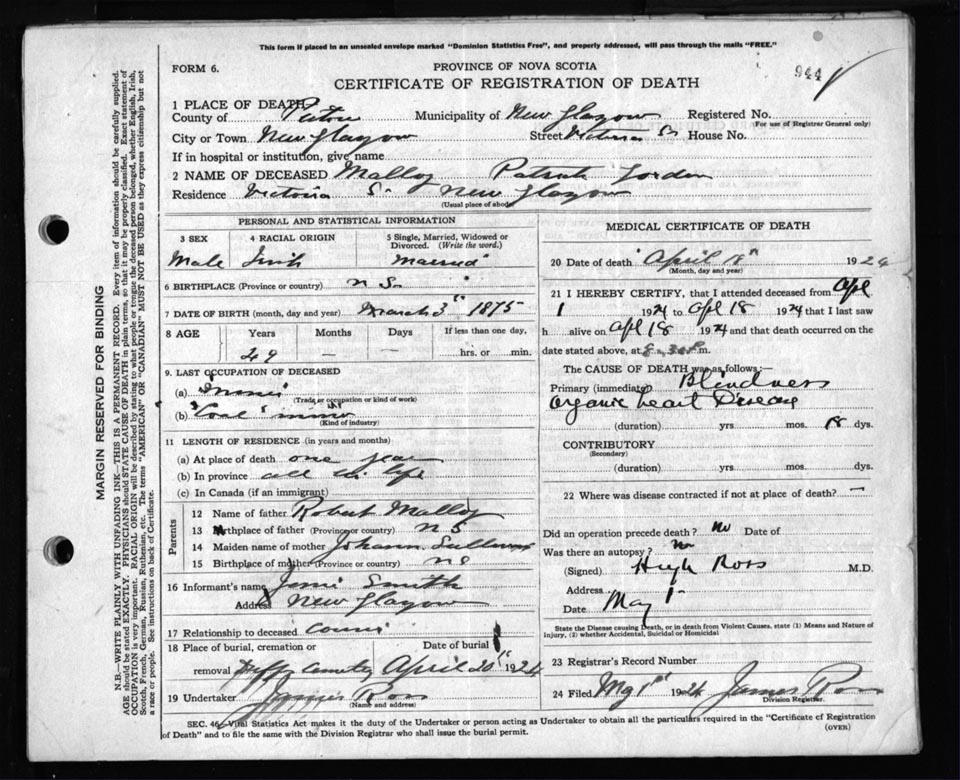 This form if placed in an unsealed envelope marked "Dominion Statistics Free", and properly addressed, will pass through the mails "FREE."
FORM 6.
PROVINCE OF NOVA SCOTIA
944
CERTIFICATE OF REGISTRATION OF DEATH
1 PLACE OF DEATH
County of Pictou Municipality of New Glasgow Registered No.
(For use of Registrar General only)
City or Town New Glasgow Street Victoria House No.
If in hospital or institution, give name
2 NAME OF DECEASED Malloy Patrick
Residence Victoria S. New Glasgow
(Usual place of abode)
PERSONAL AND STATISTICAL INFORMATION
3 SEX 4 RACIAL ORIGIN 5 Single, Married, Widowed or Divorced. (Write the word.)
Male Irish Married
6 BIRTHPLACE (Province or country) N S.
7 DATE OF BIRTH (month, day and year) March 3 1875
8 AGE Years Months Days If less than one day,
49 — — hrs. or min.
9. LAST OCCUPATION OF DECEASED
(a) Miner
(Trade or occupation or kind of work)
(b) Coal
(Kind of industry)
11 LENGTH OF RESIDENCE (in years and months)
(a) At place of death one year
(b) In province all his life
(c) In Canada (if an immigrant)
Parents
12 Name of father Robert Malloy
13 Birthplace of father (Province or country) N S
14 Maiden name of mother Johann Sullivan
15 Birthplace of mother (Province or country) N S
16 Informant's name Smith
Address New Glasgow
17 Relationship to deceased
18 Place of burial, cremation or Date of burial
removal Cemetery April 20 1924
19 Undertaker James Ross
(Name and address)
MEDICAL CERTIFICATE OF DEATH
20 Date of death April 18 1924
(Month, day and year)
21 I HEREBY CERTIFY, that I attended deceased from Apl
1 1924 to Apl 18 1924 that I last saw
h alive on Apl 18 1924 and that death occurred on
date stated above, at m.
The CAUSE OF DEATH was as follows:—
Primary (immediate) Blindness
Organic heart Disease
(duration) yrs. mos. 18 dys.
CONTRIBUTORY
(Secondary)
(duration) yrs. mos. dys.
22 Where was disease contracted if not at place of death? —
Did an operation precede death? No Date of
Was there an autopsy? No
(Signed) Hugh Ross M.D.
Address
Date May 1
State the Disease causing Death, or in death from Violent Causes, state (1) Means and Nature of Injury, (2) whether Accidental, Suicidal or Homicidal
23 Registrar's Record Number
24 Filed May 1st 1924 James Ross
Division Registrar
SEC. 46—Vital Statistics Act makes it the duty of the Undertaker or person acting as Undertaker to obtain all the particulars required in the "Certificate of Registration
of Death" and to file the same with the Division Registrar who shall issue the burial permit.
(OVER)
MARGIN RESERVED FOR BINDING
N.B. WRITE PLAINLY WITH UNFADING INK—THIS IS A PERMANENT RECORD. Every item of information should be carefully supplied.
AGE should be stated EXACTLY. PHYSICIANS should STATE CAUSE OF DEATH in plain terms, so that it may be properly classified. Exact statement of
OCCUPATION is very important. RACIAL ORIGIN will be described by stating to what people or tongue the deceased person belonged, whether English, Irish,
Scotch, French, German, Russian, Ruthenian, etc. The terms "AMERICAN" OR "CANADIAN" MUST NOT BE USED as they express citizenship but not
a race or people. See instructions on back of Certificate.